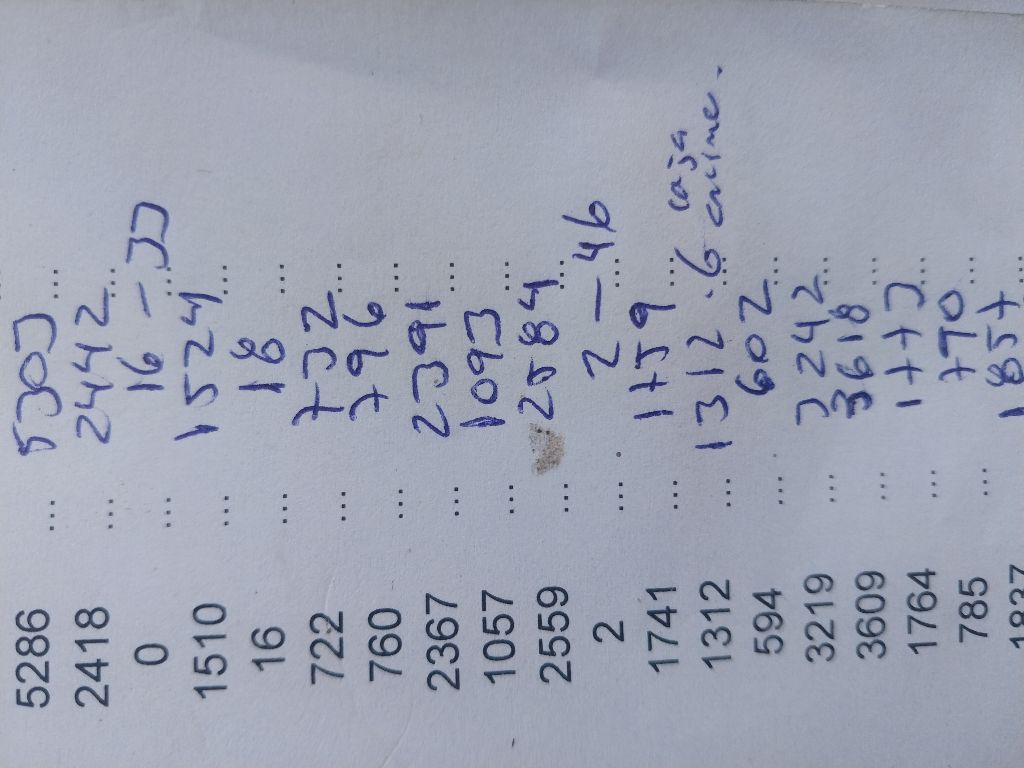 5286 ... 5303 ...
2418 ... 2442 ...
0 ... 16 - 33 ...
1510 ... 1524 ...
16 ... 18 ...
722 ... 732 ...
760 ... 796 ...
2367 ... 2391 ...
1057 ... 1093 ...
2559 ... 2584 ...
2 ... 2 - 46 ...
1741 ... 1759 ... caja
1312 ... 1312 . 6 encime .
594 ... 602 ...
3219 ... 3242 ...
3609 ... 3618 ...
1764 ... 1773 ...
785 ... 790 ...
1837 1857 ...